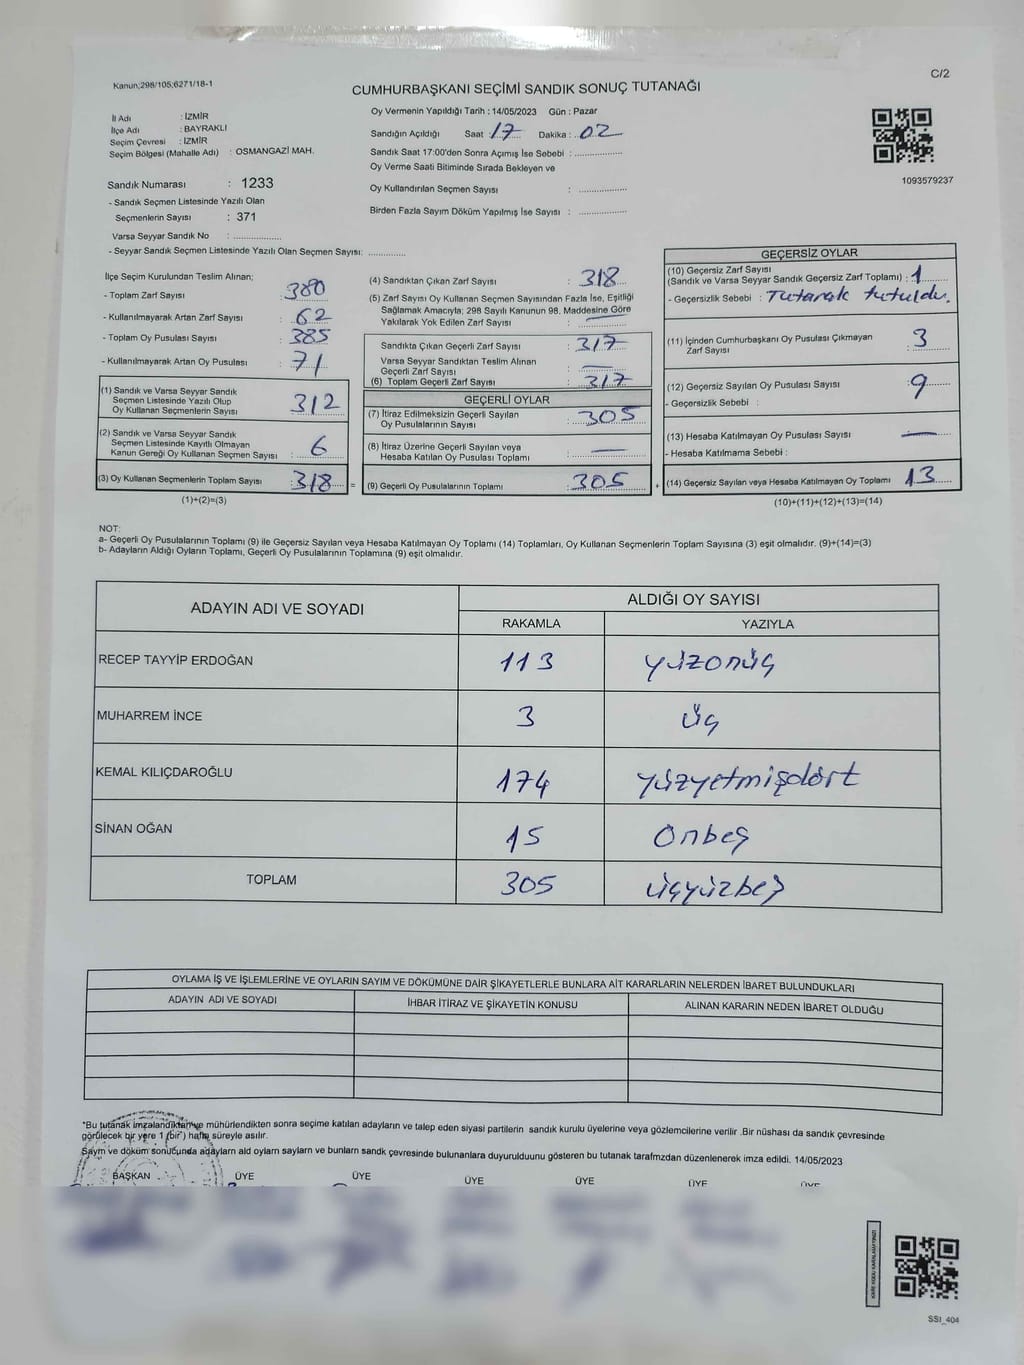 Kanun;298/105;6271/18-1
C/2
CUMHURBAŞKANI SEÇİMİ SANDIK SONUÇ TUTANAĞI
İl Adı : İZMİR
İlçe Adı : BAYRAKLI
Seçim Çevresi : İZMİR
Seçim Bölgesi (Mahalle Adı) : OSMANGAZİ MAH.
Sandık Numarası : 1233
- Sandık Seçmen Listesinde Yazılı Olan
Seçmenlerin Sayısı : 371
Varsa Seyyar Sandık No : ..................
- Seyyar Sandık Seçmen Listesinde Yazılı Olan Seçmen Sayısı: ..............
Oy Vermenin Yapıldığı Tarih : 14/05/2023 Gün : Pazar
Sandığın Açıldığı Saat : 17 Dakika : 02
Sandık Saat 17:00'den Sonra Açımış İse Sebebi : ..................
Oy Verme Saati Bitiminde Sırada Bekleyen ve
Oy Kullandırılan Seçmen Sayısı : ..................
Birden Fazla Sayım Döküm Yapılmış İse Sayısı : ..................
1093579237
İlçe Seçim Kurulundan Teslim Alınan;
- Toplam Zarf Sayısı : 380
- Kullanılmayarak Artan Zarf Sayısı : 62
- Toplam Oy Pusulası Sayısı : 385
- Kullanılmayarak Artan Oy Pusulası : 71
(1) Sandık ve Varsa Seyyar Sandık
Seçmen Listesinde Yazılı Olup
Oy Kullanan Seçmenlerin Sayısı : 312
(2) Sandık ve Varsa Seyyar Sandık
Seçmen Listesinde Kayıtlı Olmayan
Kanun Gereği Oy Kullanan Seçmen Sayısı : 6
(3) Oy Kullanan Seçmenlerin Toplam Sayısı : 318 =
(1)+(2)=(3)
(4) Sandıktan Çıkan Zarf Sayısı : 318
(5) Zarf Sayısı Oy Kullanan Seçmen Sayısından Fazla İse, Eşitliği
Sağlamak Amacıyla; 298 Sayılı Kanunun 98. Maddesine Göre
Yakılarak Yok Edilen Zarf Sayısı : —
Sandıkta Çıkan Geçerli Zarf Sayısı : 317
Varsa Seyyar Sandıktan Teslim Alınan
Geçerli Zarf Sayısı : —
(6) Toplam Geçerli Zarf Sayısı : 317
GEÇERLİ OYLAR
(7) İtiraz Edilmeksizin Geçerli Sayılan
Oy Pusulalarının Sayısı : 305
(8) İtiraz Üzerine Geçerli Sayılan veya
Hesaba Katılan Oy Pusulası Toplamı : —
(9) Geçerli Oy Pusulalarının Toplamı : 305 +
GEÇERSİZ OYLAR
(10) Geçersiz Zarf Sayısı
(Sandık ve Varsa Seyyar Sandık Geçersiz Zarf Toplamı) : 1
- Geçersizlik Sebebi : Tutanak tutuldu.
(11) İçinden Cumhurbaşkanı Oy Pusulası Çıkmayan
Zarf Sayısı : 3
(12) Geçersiz Sayılan Oy Pusulası Sayısı : 9
- Geçersizlik Sebebi :
(13) Hesaba Katılmayan Oy Pusulası Sayısı : —
- Hesaba Katılmama Sebebi :
(14) Geçersiz Sayılan veya Hesaba Katılmayan Oy Toplamı : 13
(10)+(11)+(12)+(13)=(14)
NOT:
a- Geçerli Oy Pusulalarının Toplamı (9) ile Geçersiz Sayılan veya Hesaba Katılmayan Oy Toplamı (14) Toplamları, Oy Kullanan Seçmenlerin Toplam Sayısına (3) eşit olmalıdır. (9)+(14)=(3)
b- Adayların Aldığı Oyların Toplamı, Geçerli Oy Pusulalarının Toplamına (9) eşit olmalıdır.
ADAYIN ADI VE SOYADI ALDIĞI OY SAYISI
RAKAMLA YAZIYLA
RECEP TAYYİP ERDOĞAN 113 yüzonüç
MUHARREM İNCE 3 üç
KEMAL KILIÇDAROĞLU 174 yüzyetmişdört
SİNAN OĞAN 15 Onbeş
TOPLAM 305 üçyüzbeş
OYLAMA İŞ VE İŞLEMLERİNE VE OYLARIN SAYIM VE DÖKÜMÜNE DAİR ŞİKAYETLERLE BUNLARA AİT KARARLARIN NELERDEN İBARET BULUNDUKLARI
ADAYIN ADI VE SOYADI İHBAR İTİRAZ VE ŞİKAYETİN KONUSU ALINAN KARARIN NEDEN İBARET OLDUĞU
*Bu tutanak imzalandıktan ve mühürlendikten sonra seçime katılan adayların ve talep eden siyasi partilerin sandık kurulu üyelerine veya gözlemcilerine verilir .Bir nüshası da sandık çevresinde
görülecek bir yere 1 (bir) hafta süreyle asılır.
Sayım ve döküm sonucunda adayların ald oyların sayların ve bunların sandk çevresinde bulunanlara duyurulduunu gösteren bu tutanak tarafmzdan düzenlenerek imza edildi. 14/05/2023
BAŞKAN ÜYE ÜYE ÜYE ÜYE ÜYE ÜYE
SSI_404